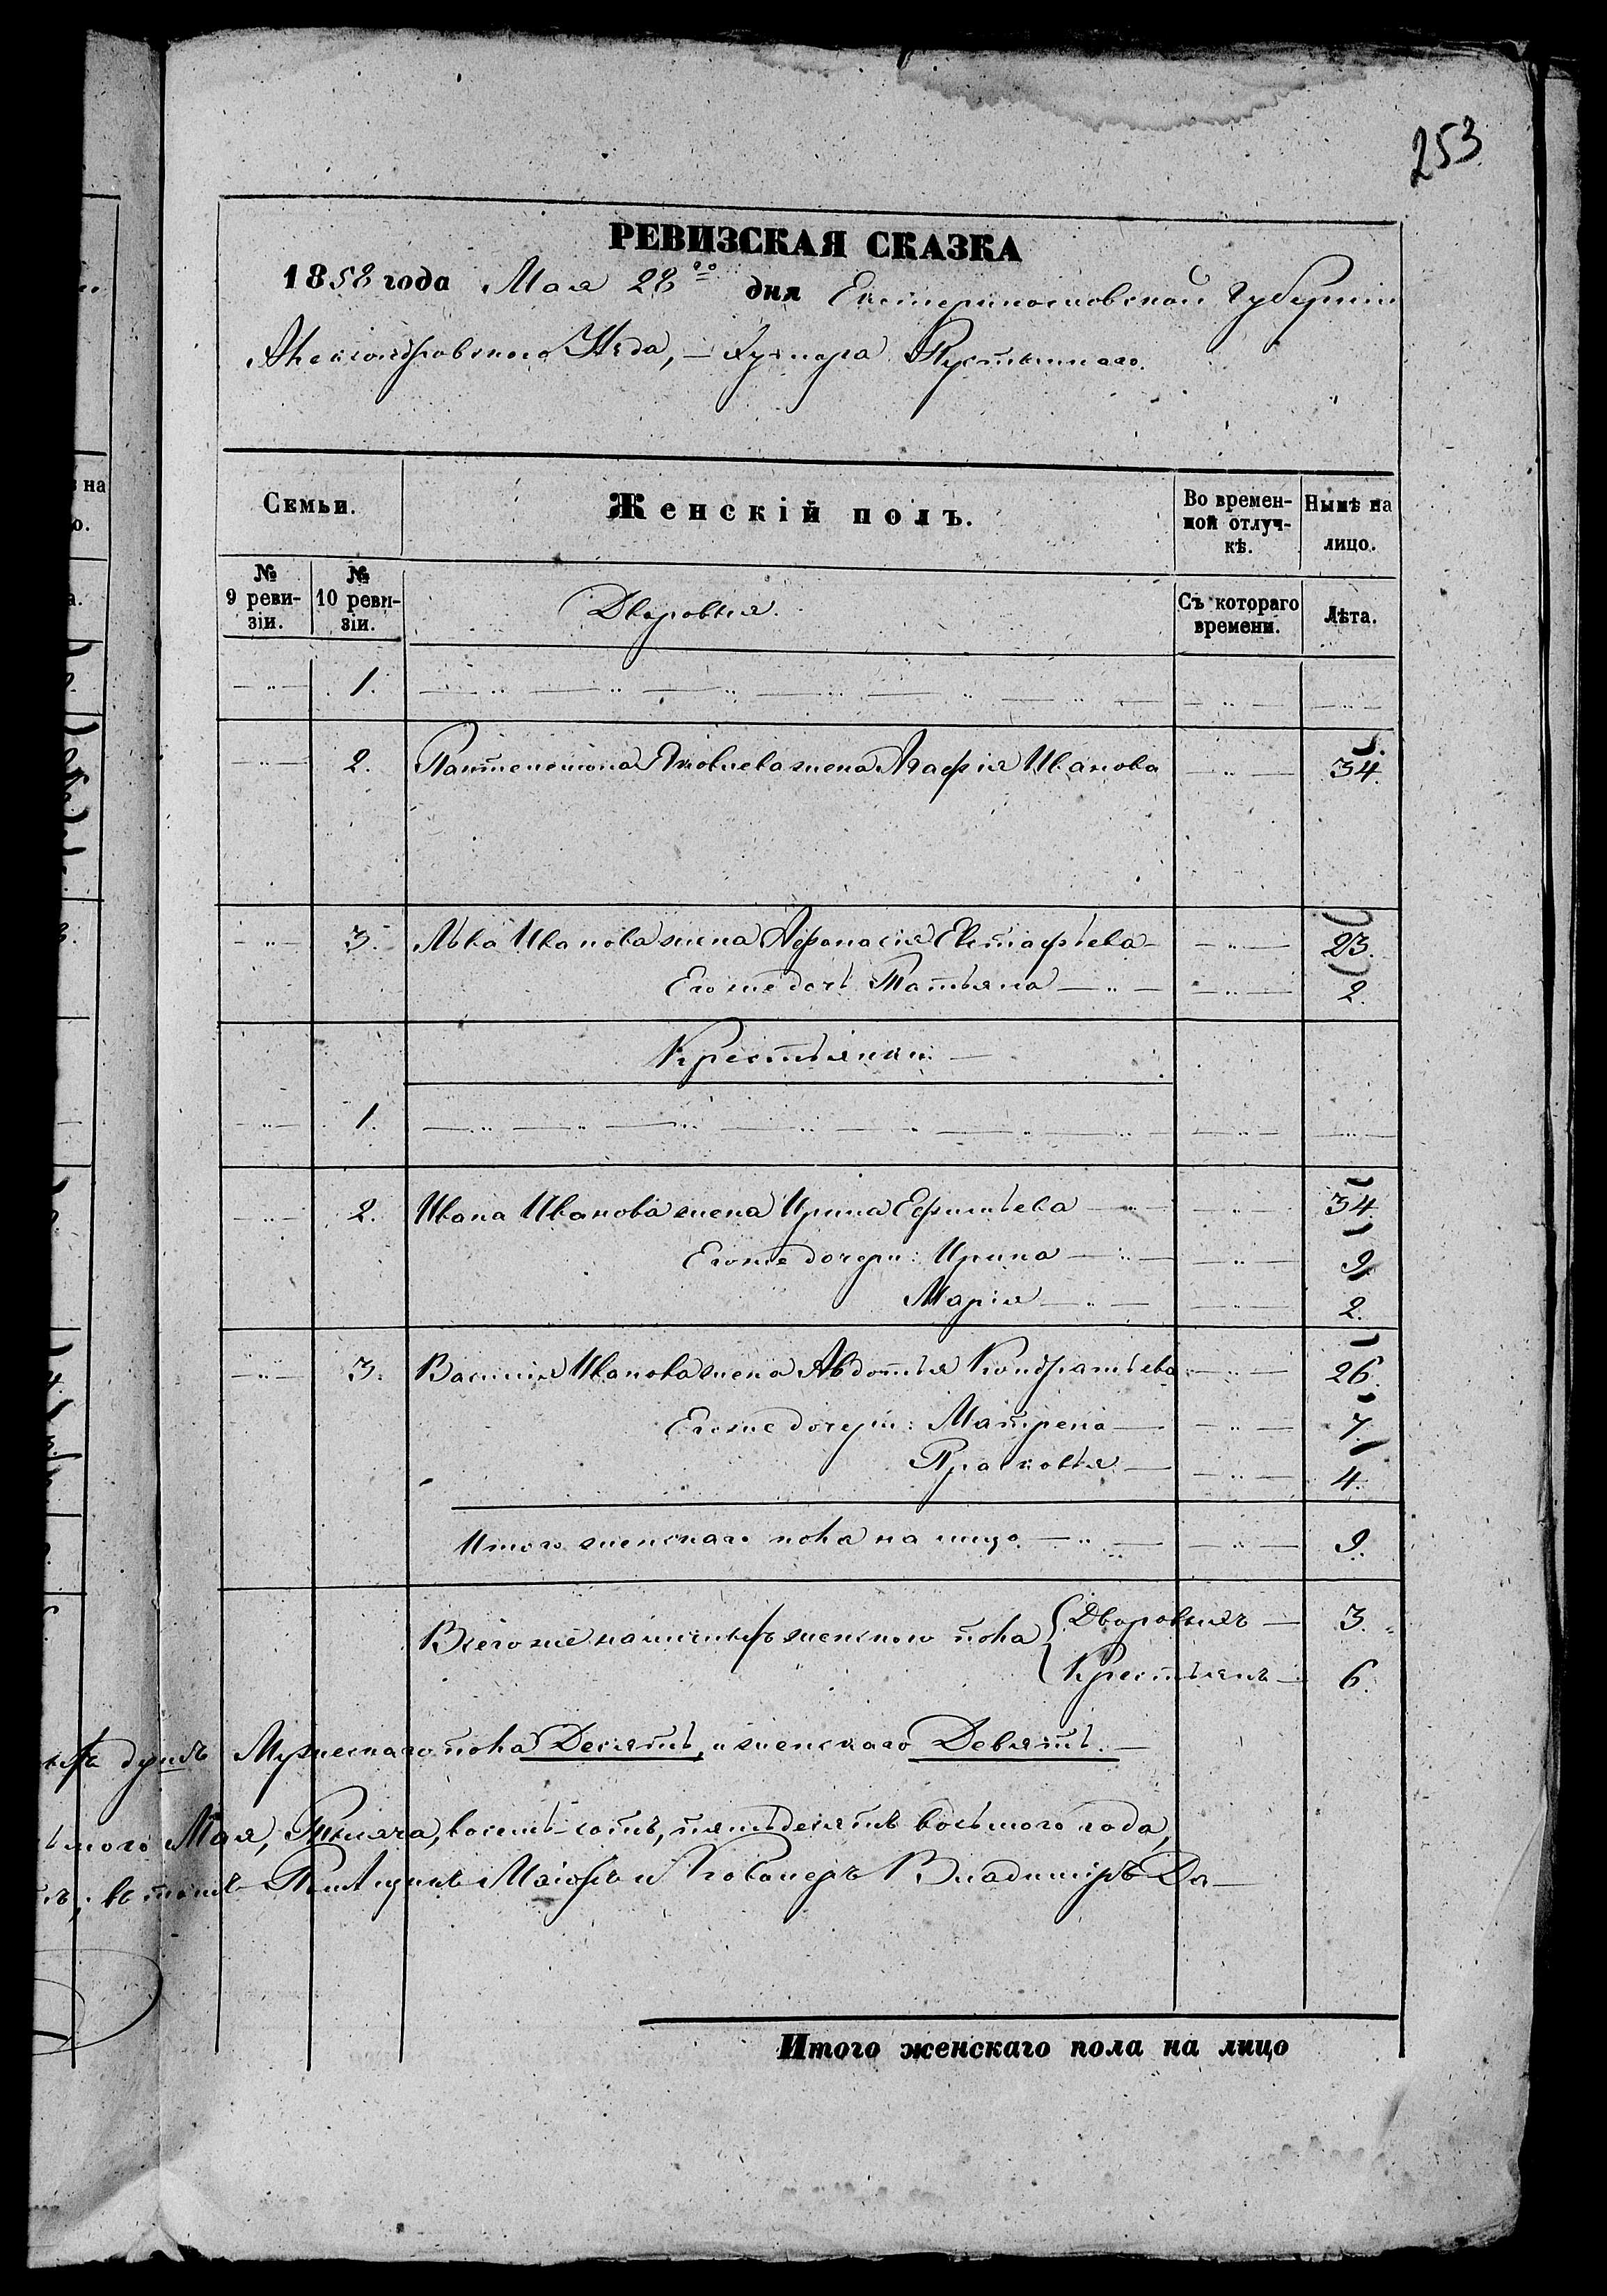 253
РЕВИЗСКАЯ СКАЗКА
1858 года Мая 28го дня Екатеринославской Губерніи
Александровскаго Уѣзда, – Хутора Пустыннаго.
на
о.
а.
Семьи. Женскій полъ. Во времен- Нынѣ на
ной отлуч-
кѣ. лицо.
№ №
9 реви- 10 реви- Дворовыя. Съ котораго Лѣта.
зіи. зіи. времени.
— „ — 1. — „ — „ — „ — „ — „ — „ — — „ — — „ —
— „ — 2. Пантелемона Яковлева жена Агафія Иванова — „ — 34.
— „ — 3. Льва Иванова жена Афанасія Евстафьева — — „ — 23.
Его же дочь Татьяна — „ — — „ — 2.
Крестьянки. —
— „ — 1. — „ — „ — „ — „ — „ — „ — — „ — — „ —
— „ — 2. Ивана Иванова жена Ирина Ефимьева — „ — — „ — 34.
Его же дочери: Ирина — „ — — „ — 9.
Марія — „ — — „ — 2.
— „ — 3. Василія Иванова жена Авдотья Кондратьева — „ — 26.
Его же дочери: Матрена — — „ — 7.
Прасковья — — „ — 4.
Итого женскаго пола на лицо — „ — — „ — 9.
Всего же наличныхъ женскаго пола { Дворовыхъ — 3.
Крестьянъ — 6.
душъ Мужескаго пола Десять, и женскаго Девять. —
Мая, Тысяча, восемь-сотъ, пятьдесятъ восьмого года,
въ томъ Маіоръ и Кавалеръ Владиміръ
Итого женскаго пола на лицо